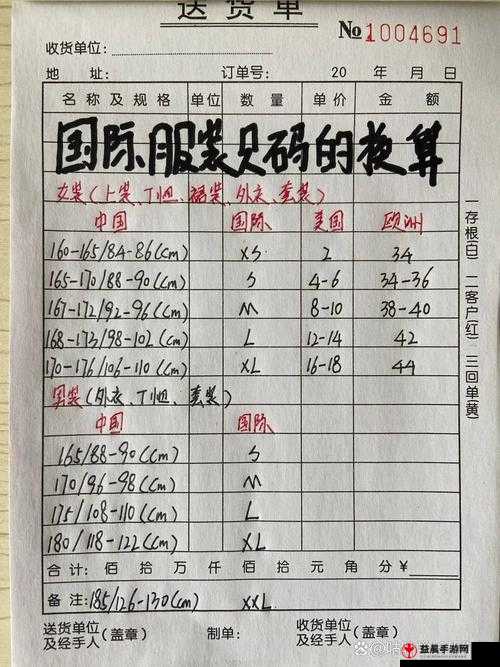 送货单
№1004691
收货单位:
地 址: 订单号: 20 年 月 日
名称及规格 单位 数量 单价 金额
国际服装尺码的换算
女装(上装、T恤、裙装、外衣、套装)
中国 国际 美国 欧洲
160-165/84-86(cm) XS 2 34
165-170/88-90(cm) S 4-6 34-36
167-172/92-96(cm) M 8-10 38-40
168-173/98-102(cm) L 12-14 42
170-176/106-110(cm) XL 16-18 44
男装(外衣、T恤、套装)
中国 国际
165/88-90(cm) S
170/96-98(cm) M
175/108-110(cm) L
180/118-122(cm) XL
合计: 佰 拾 万 仟 佰 拾 元 角 分 ¥
备注: 185/126-130(cm) XXL
送货单位及经手人(盖章) 制单: 收货单位及经手人(盖章)
一存根(白) 二客户(红) 三回单(黄)
益晨手游网